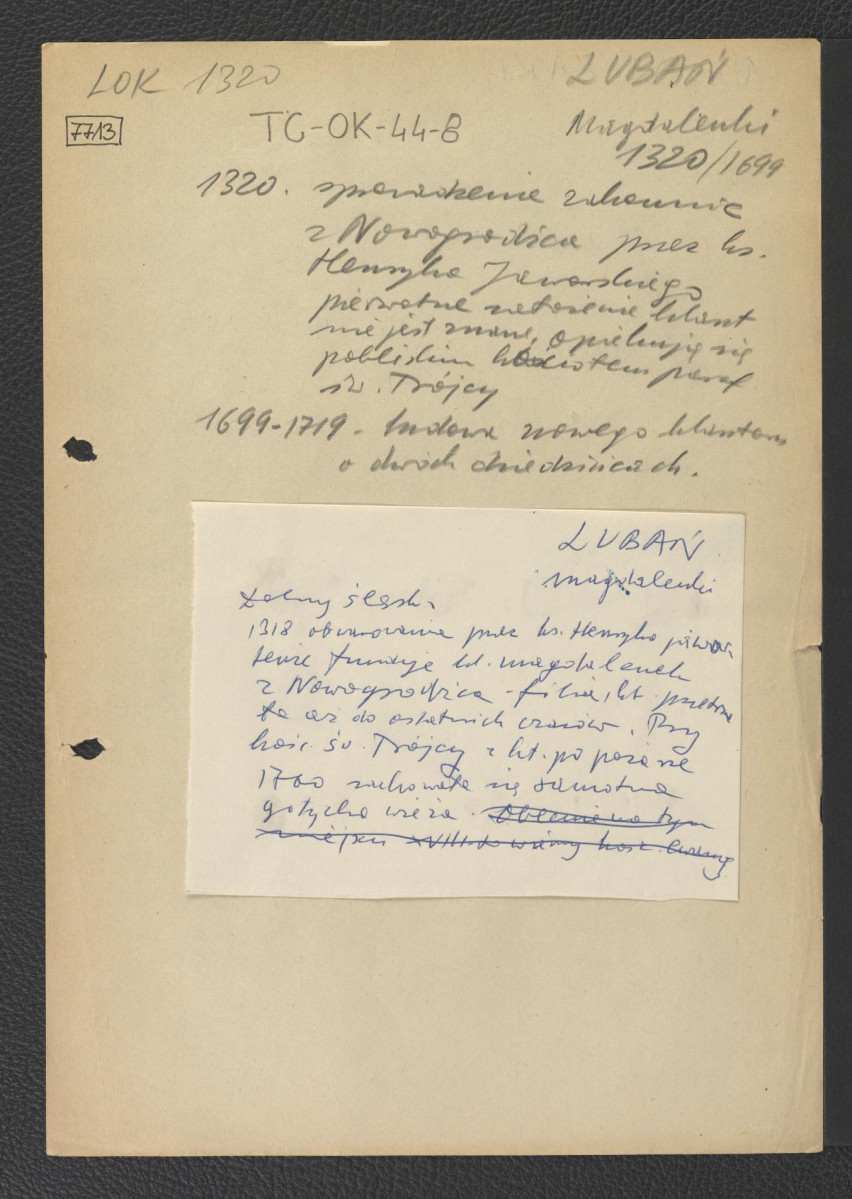 LOK 1320
LUBAŃ
7713
TC-OK-44-B
Magdalenki
1320/1699
1320. sprowadzenie zakonnic
z Nowogrodźca przez ks.
Henryka Jaworskiego
pierwotne założenie klaszt
nie jest znane, opiekują się
pobliskim kościołem paraf
św. Trójcy
1699-1719 - budowa nowego klasztoru
o dwóch dziedzińcach.
LUBAŃ
magdalenki
Dolny Śląsk
1318 obwarowania przez ks. Henryka jawor.
tenże funduje kl. magdalenek
z Nowogrodźca - filia, kl. przetrw
ta aż do ostatnich czasów. Przy
kośc. św. Trójcy z kl. po pożarze
1760 zachowała się samotna
gotycka wieża. Obecnie na tym
miejscu XVIII